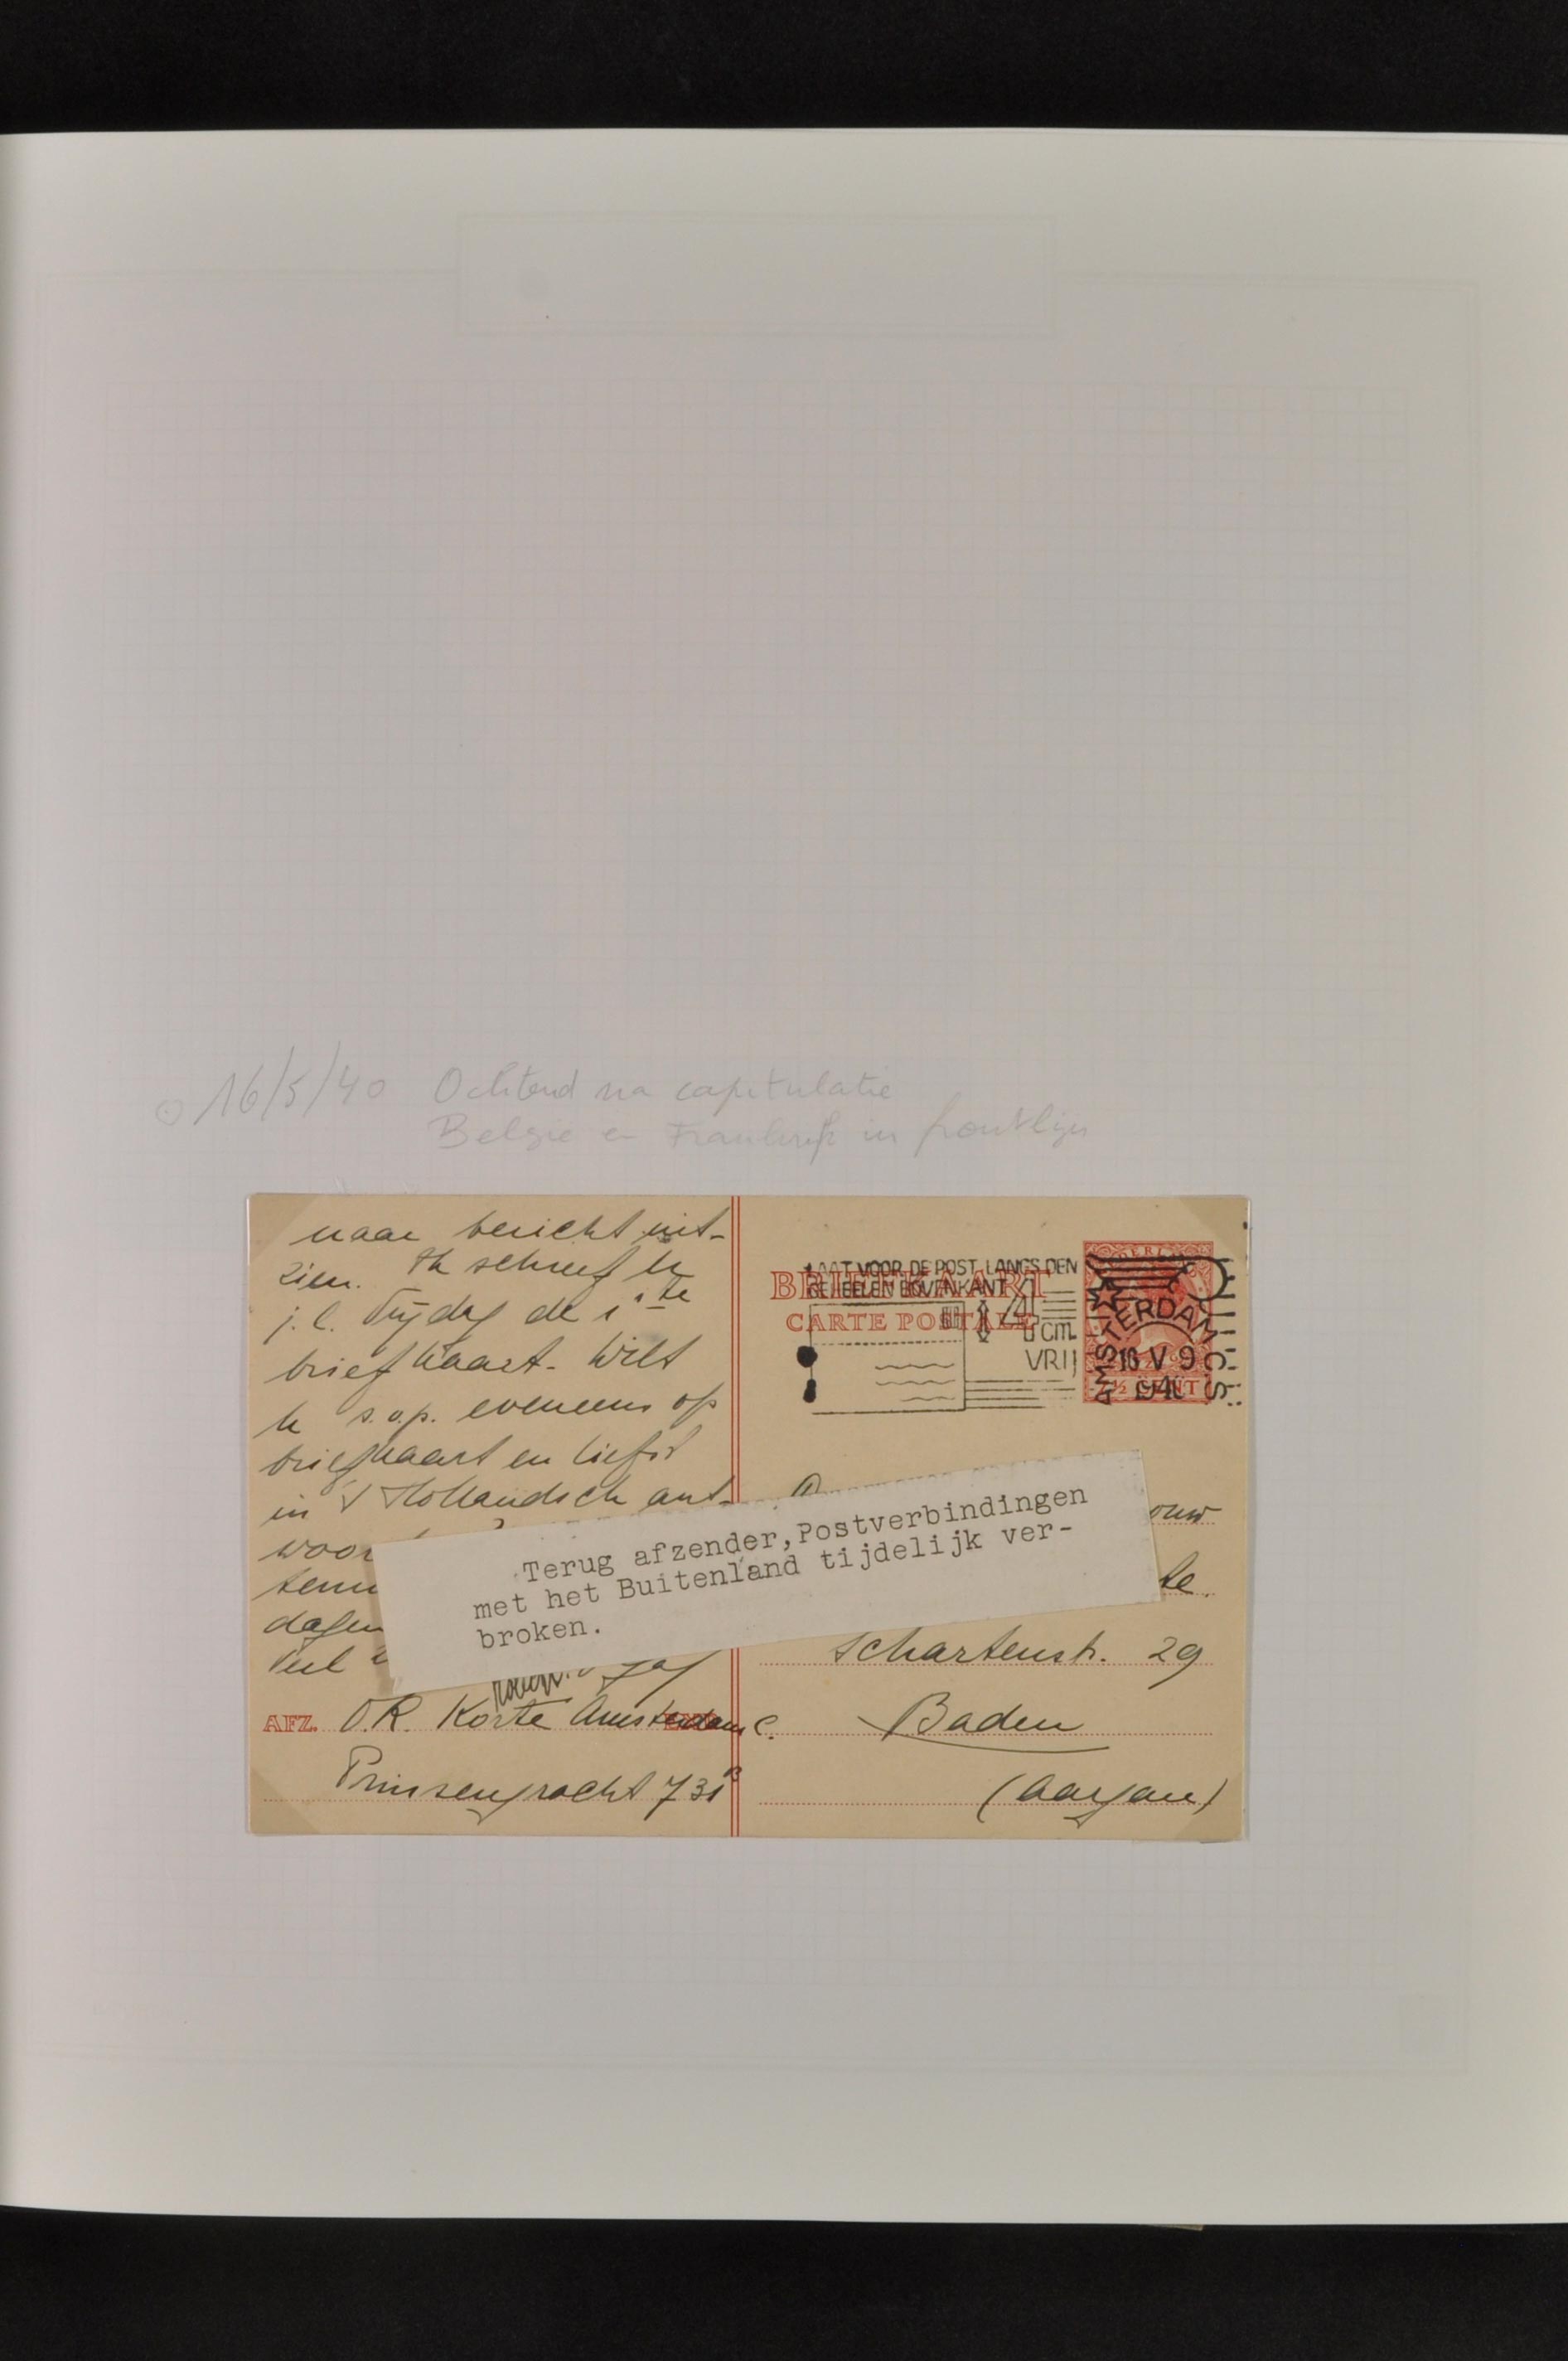 16/5/40 Ochtend na capitulatie
Belgie en Frankrijk in frontlijn
naar bericht uit-
zien. Ik schreef U
j.l. Vrijdag de 1ste
briefkaart. Wilt
U s.v.p. eveneens op
briefkaart en liefst
in 't Hollandsch ant-
woor
dagen
Veel
AFZ. O.R. Korte Amsterdam C.
Prinsengracht 731
LAAT VOOR DE POST LANGS DEN
GEHEELEN BOVENKANT
4 CM.
VRIJ
BRIEFKAART
CARTE POSTALE
AMSTERDAM C.S.
16 V 9
1940
½ CENT
Terug afzender, Postverbindingen
met het Buitenland tijdelijk ver-
broken.
ouw
te
Schartenstr. 29
Baden
(Aargau)